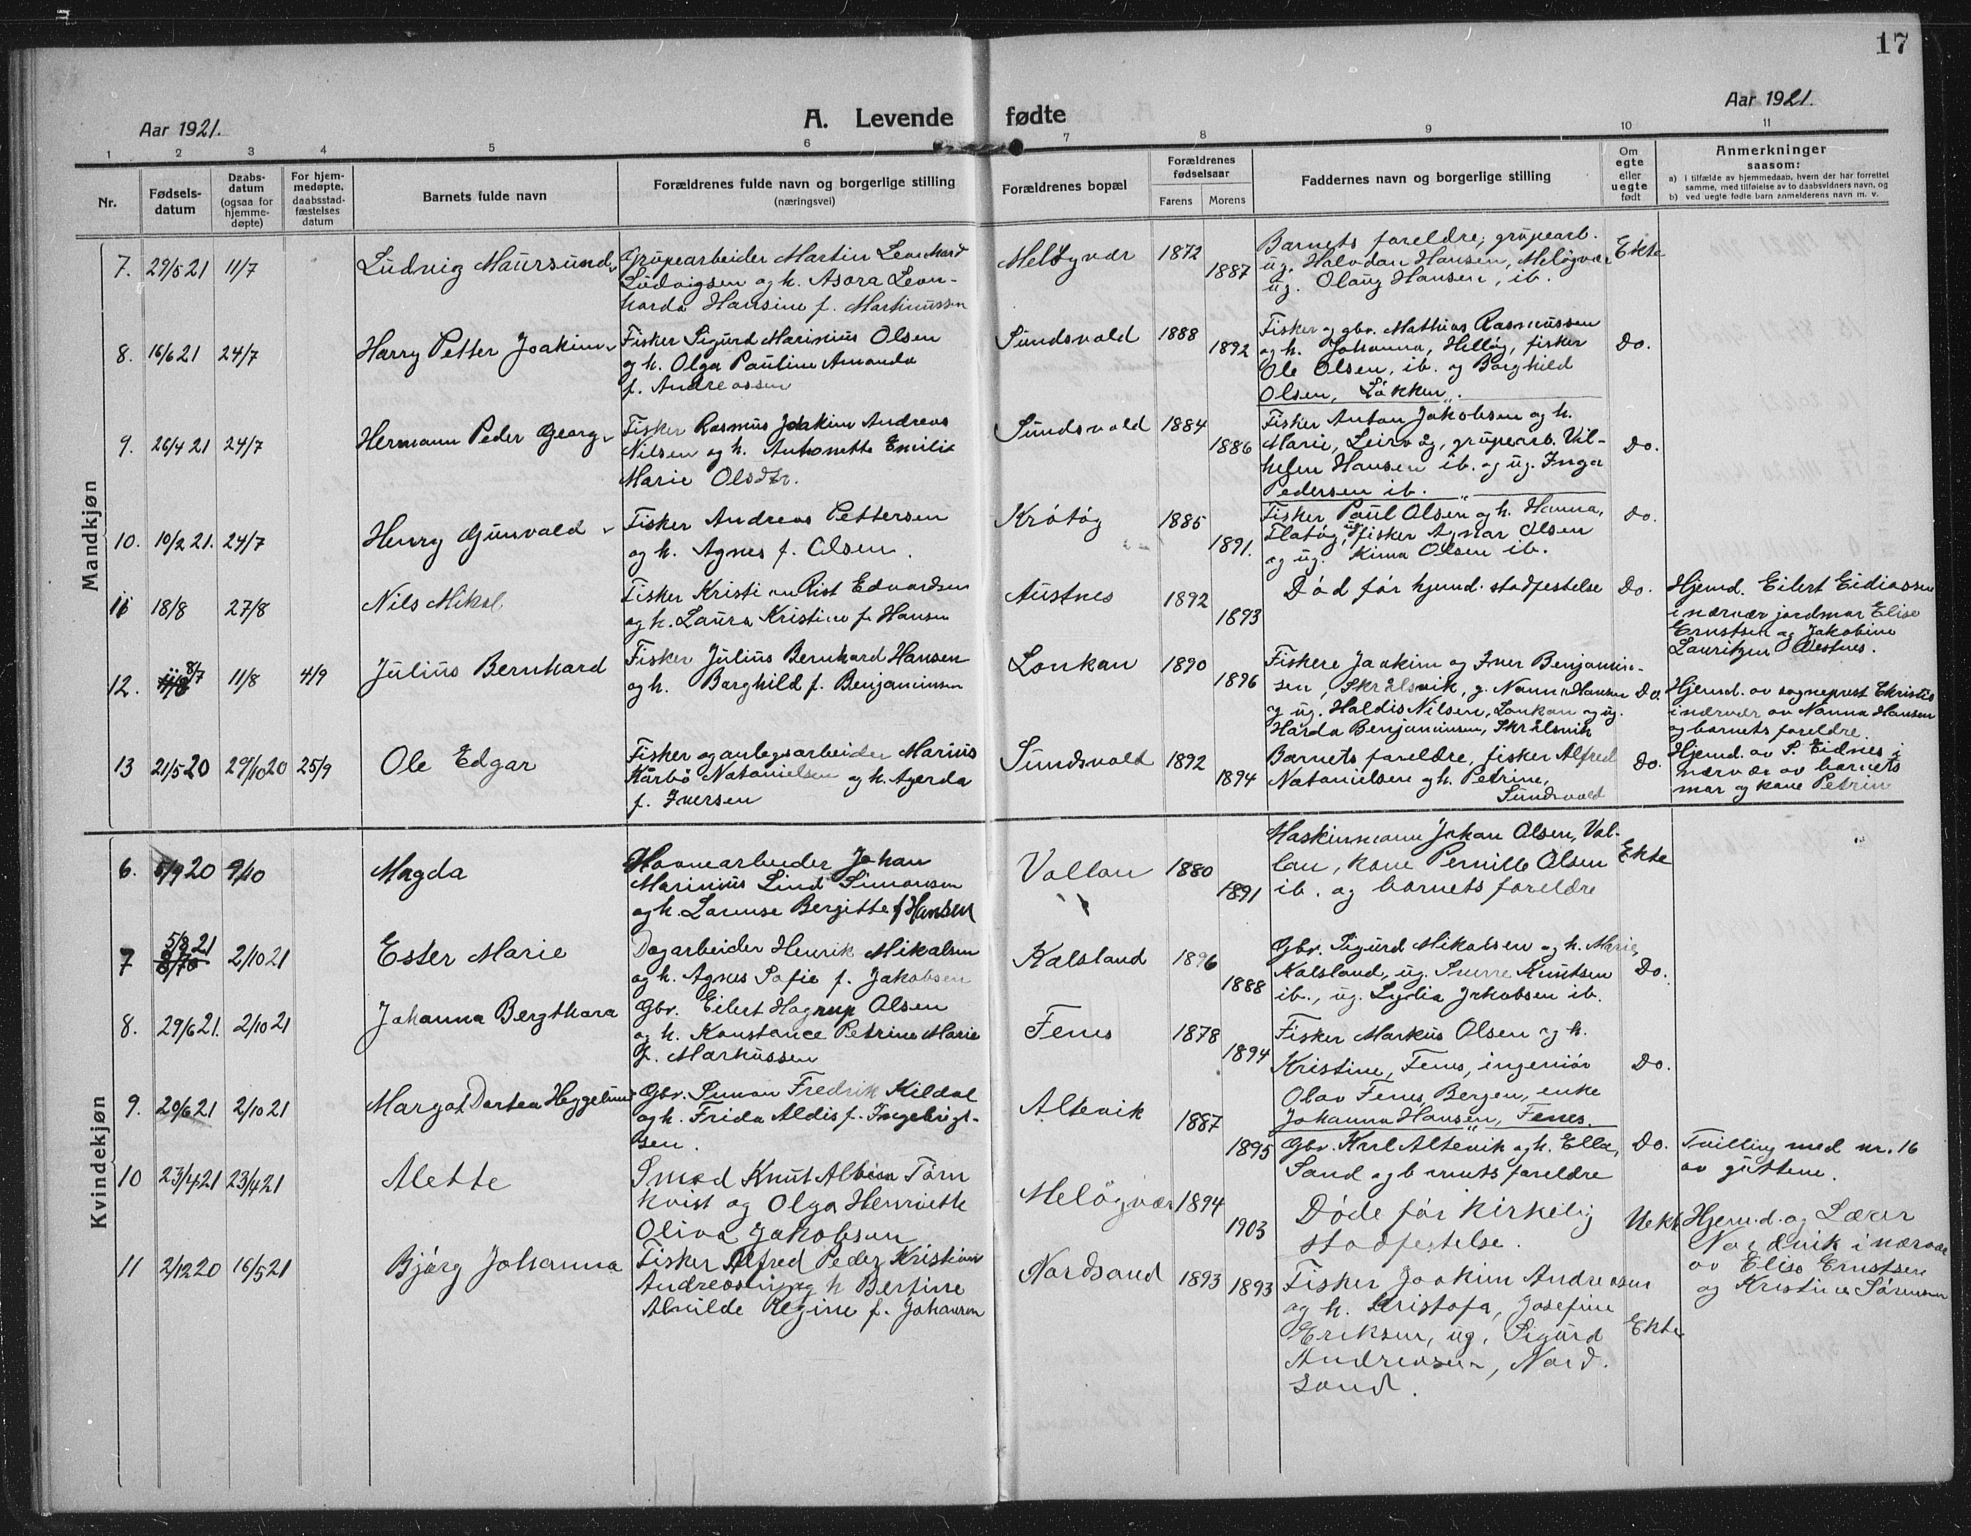 17
Aar 1921.
A. Levende fødte
Aar 1921.
1 2 3 4 5 6 7 8 9 10 11
Nr.
Fødsels-
datum
Daabs-
datum
(ogsaa for
hjemme-
døpte)
For hjem-
medøpte,
daabsstad-
fæstelses
datum
Barnets fulde navn
Forældrenes fulde navn og borgerlige stilling
(næringsvei)
Forældrenes bopæl
Forældrenes
fødselsaar
Farens Morens
Faddernes navn og borgerlige stilling
Om
egte
eller
uegte
født
Anmerkninger
saasom:
a) i tilfælde av hjemmedaab, hvem der har forrettet
samme, med tilføielse av to daabsvidners navn, og
b) ved uegte fødte barn anmelderens navn m. v.
Mandkjøn
7. 29/5 21 11/7
Ludvig Maursund
Grubearbeider Martin Leonhard
Ludvigsen og h. Asora Leon-
harda Hansine f. Martinussen
Meløyvær 1872 1887
Barnets foreldre, grubearb.
ug. Halvdan Hansen, Meløyvær
ug. Olaug Hansen, ib.
Ekte
8. 16/6 21 24/7
Harry Petter Joakim
Fisker Sigurd Marinius Olsen
og h. Olga Pauline Amanda
f. Andreassen
Sundsvold 1888 1892
Fisker og gbr. Mathias Rasmussen
og h. Johanna, Helløy, fisker
Ole Olsen, ib. og Borghild
Olsen, Løkken.
Do.
9. 26/4 21 24/7
Hermann Peder Georg
Fisker Rasmus Joakim Andreas
Nilsen og h. Antonette Emilie
Marie Olsdtr.
Sundsvold 1884 1886
Fisker Anton Jakobsen og h.
Marie, Leirvåg, grubearb. Vil-
helm Hansen ib. og ug. Inga
Pedersen ib.
Do.
10. 10/2 21. 24/7
Henry Gunvald
Fisker Andreas Pettersen
og h. Agnes f. Olsen.
Krøtøy 1885 1891.
Fisker Paul Olsen og h. Hanna,
Flatøy, ug. fisker Agnar Olsen
og ug. Kima Olsen ib.
Do.
11 18/8 27/8
Nils Mikal
Fisker Kristian Rist Edvardsen
og h. Laura Kristine f. Hansen
Austnes 1892 1893
Død før hjemd. stadfestelse
Do.
Hjemd. Eilert Eidiassen
i nærvær jordmor Elise
Ernstsen og Jakobine
Lauritzen Olestnes.
12. 8/7 11/8 4/9
Julius Bernhard
Fisker Julius Bernhard Hansen
og h. Borghild f. Benjaminsen
Lonkan 1890 1896
Fiskere Joakim og Iver Benjamin-
sen, Skrålsvik, g. Nanna Hansen
og ug. Haldis Nilsen, Lonkan og ug.
Harda Benjaminsen, Skrålsvik
Do.
Hjemd. av sogneprest Christie
i nærvær av Nanna Hansen
og barnets foreldre.
13 21/5 20 29/10 20 25/9
Ole Edgar
Fisker og anlegsarbeider Marius
Kårbø Natanielsen og h. Agerda
f. Iversen
Sundsvold 1892 1894
Barnets foreldre, fisker Alfred
Natanielsen og h. Petrine,
Sundsvold
Do.
Hjemd. av S. Eidnes i
nærvær av barnets
mor og kone Petrin
Kvindekjøn
6. 5/9 20 9/10
Magda
Havnearbeider Johan
Marinius Lind Simonsen
og h. Larense Bergitte f Hansen
Vollan 1880 1891
Maskinmann Johan Olsen, Val-
lan, kone Pernille Olsen
ib. og barnets foreldre
Ekte
7 5/8 21 2/10 21
Ester Marie
Dagarbeider Henrik Mikalsen
og h. Agnes Sofie f. Jakobsen
Kalsland 1896 1888
Gbr. Sigurd Mikalsen og h. Marie,
Kalsland, ug. Snorre Knutsen
ib., ug. Lydia Jakobsen ib.
Do.
8. 29/6 21. 2/10 21
Johanna Bergthora
Gbr. Eilert Hagrup Olsen
og h. Konstance Petrine Marie
f. Markussen
Fenes 1878 1894
Fisker Markus Olsen og h.
Kristine, Fenes, ingeniør
Olav Fenes, Bergen, enke
Johanna Hansen, Fenes.
Do.
9. 20/6 21 2/10 21
Margot Dortea Heggelund
Gbr. Simon Fredrik Kildal
og h. Frida Aldis f. Ingebrigt-
sen.
Altevik 1887 1895
Gbr. Karl Altevik og h. Ella,
Sand og barnets foreldre
Do.
Tvilling med nr. 16
av guttene.
10 23/4 21 23/4 21
Alette
Smed Knut Albin Törn
kvist og Olga Henriette
Oliva Jakobsen
Meløyvær 1894 1903
Døde før kirkelig
stadfestelse.
Uekt
Hjemd. og Lærer
Nordvik i nærvær
av Elise Ernstsen
og Kristine Sørensen
11 2/12 20 16/5 21
Bjørg Johanna
Fisker Alfred Peder Kristian
Andreassen og h Berfine
Alvilde Regine f. Johansen
Nordsand 1893 1893
Fisker Joakim Andreassen
og h. Kristofa, Josefine
Eriksen, ug. Sigurd
Andreassen, Nord.
sand.
Ekte